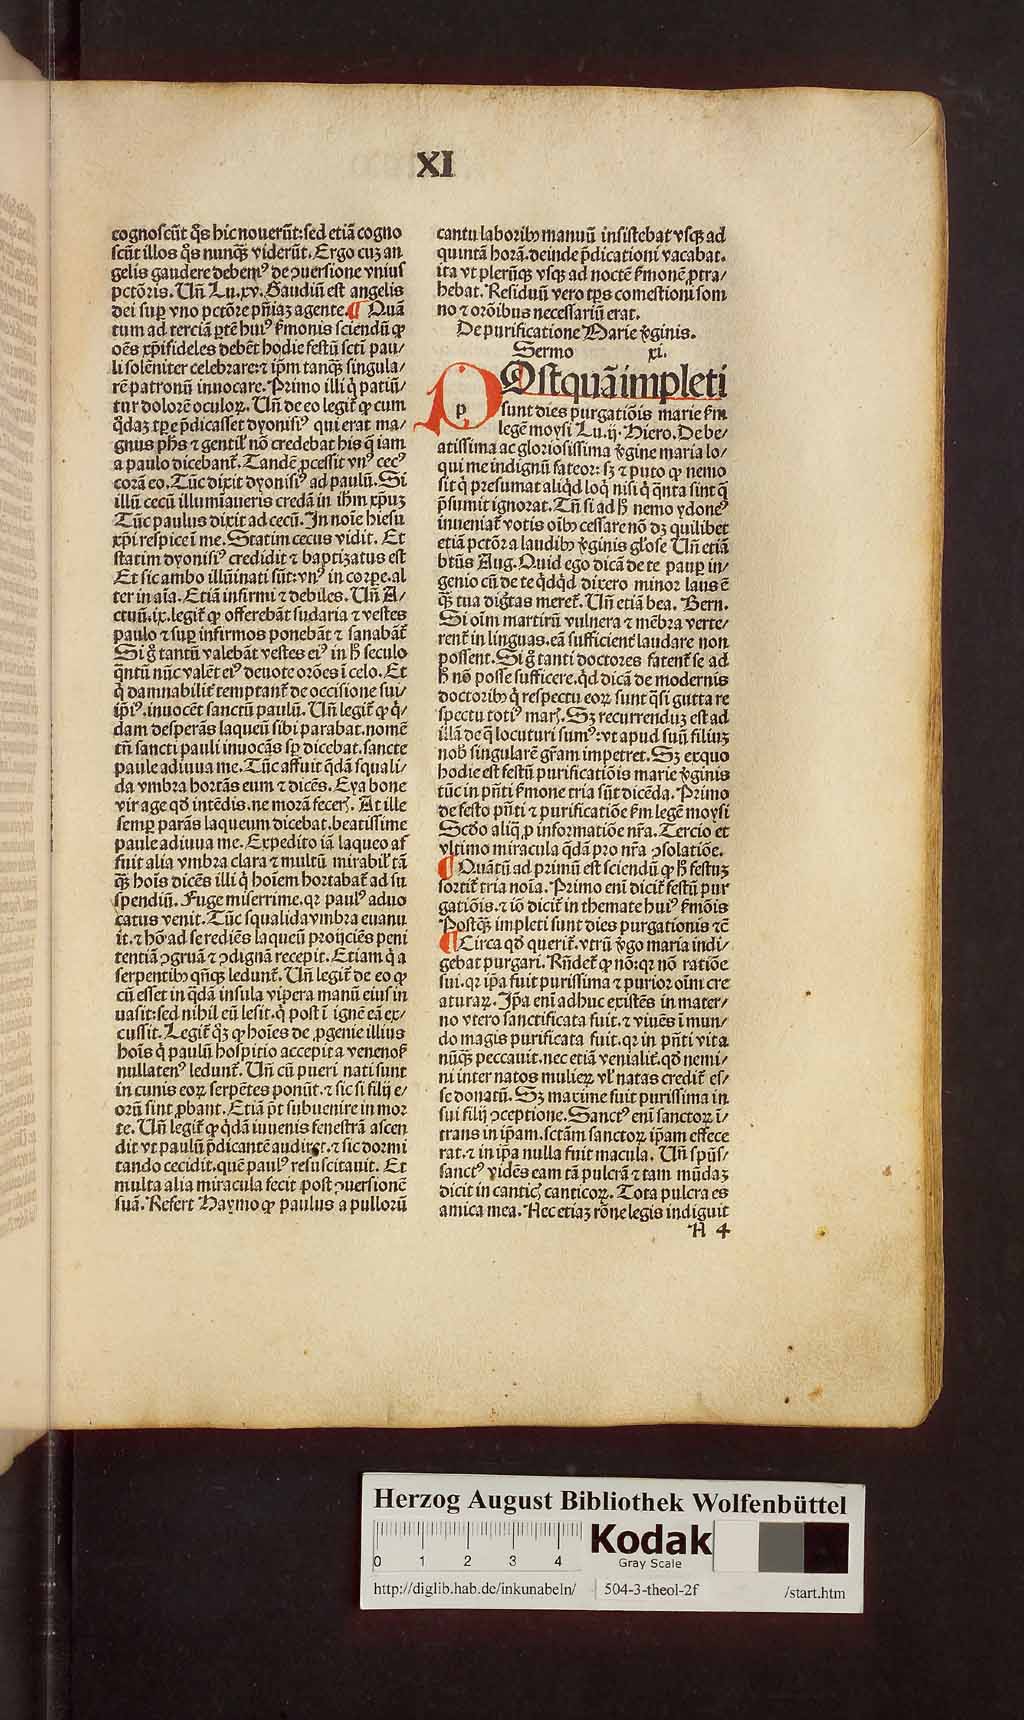 XI
cognoscūt q̄s hic nouerūt: sed etiā cogno
scūt illos q̄s nunq̄ꝫ viderūt. Ergo cuꝫ an
gelis gaudere debemꝰ de ꝯuersione vniuſ
pctōris. Uñ Lu.xv. Gaudiū est angelis
dei suꝑ vno pctōre pñiaꝫ agente. ¶ Quā
tum ad terciā ꝑtē huiꝰ ẜmonis sciendū ꝙ
oēs xp̄ifideles debēt hodie festū scti pau/
li solēniter celebrare: ⁊ ip̄m tanqꝫ singula/
rē patronū inuocare. Primo illi q̇ patiū/
tur dolorē oculoꝝ. Uñ de eo legit᷑ ꝙ cum
q̇daꝫ tꝑe p̄dicasset dyonisiꝰ qui erat ma/
gnus ph̄s ⁊ gentil' nō credebat his q̄ iam
a paulo dicebant᷑. Tandē ꝓcessit vnꝰ cecꝰ
corā eo. Tūc dixit dyonisiꝰ ad paulū. Si
illū cecū illumīaueris credā in ihm̄ xp̄uꝫ
Tūc paulus dixit ad cecū. In noīe hiesu
xp̄i respice ī me. Statim cecus vidit. Et
statim dyonisiꝰ credidit ⁊ baptizatus est
Et sic ambo illūinati sūt: vnꝰ in corꝑe. al
ter in aīa. Etiā infirmi ⁊ debiles. Uñ A/
ctuū.ix. legit᷑ ꝙ offerebāt sudaria ⁊ vestes
paulo ⁊ suꝑ infirmos ponebāt ⁊ sanabāt᷑
Si g̊ tantū valebāt vestes eiꝰ in h̄ seculo
q̄ntū nūc valēt eiꝰ deuote orōes ī celo. Et
q̇ damnabilit᷑ temptant᷑ de occisione sui/
ip̄iꝰ. inuocēt sanctū paulū. Uñ legit᷑ ꝙ q̇/
dam desperās laqueū sibi parabat. nomē
tñ sancti pauli inuocās sꝑ dicebat. sancte
paule adiuua me. Tūc affuit q̄dā squali/
da vmbra hortās eum ⁊ dicēs. Eya bone
vir age qd̄ intēdis. ne morā fecerꝭ. At ille
semꝑ parās laqueum dicebat. beatissime
paule adiuua me. Expedito iā laqueo af
fuit alia vmbra clara ⁊ multū mirabil' tā
qꝫ hoīs dicēs illi q̇ hoīem hortabat᷑ ad su
spendiū. Fuge miserrime. qꝛ paulꝰ aduo
catus venit. Tūc squalida vmbra euanu
it. ⁊ hō ad se rediēs laqueū proijciēs peni
tentiā ꝯgruā ⁊ ꝯdignā recepit. Etiam q̇ a
serpentibꝫ qñqꝫ ledunt᷑. Uñ legit᷑ de eo ꝙ
cū esset in q̄dā insula vipera manū eius in
uasit: sed nihil eū lesit. q̇ post ī ignē eā ex/
cussit. Legit᷑ q̇ꝫ ꝙ hoīes de ꝓgenie illius
hoīs q̇ paulū hospitio accepit a venenoſ
nullatenꝰ ledunt᷑. Uñ cū pueri nati sunt
in cunis eoꝝ serpētes ponūt. ⁊ sic si filij e/
orū sint ꝓbant. Etiā pt̄ subuenire in mor
te. Uñ legit᷑ ꝙ q̇dā iuuenis fenestrā ascen
dit vt paulū p̄dicantē audiret. ⁊ sic dormi
tando cecidit. quē paulꝰ resuscitauit. Et
multa alia miracula fecit post ꝯuersionē
suā. Refert Haymo ꝙ paulus a pullorū
cantu laboribꝫ manuū insistebat vsqꝫ ad
quintā horā. deinde p̄dicationi vacabat.
ita vt plerūqꝫ vsqꝫ ad noctē ẜmonē ꝓtra/
hebat. Residuū vero tꝑis comestioni som
no ⁊ orōibus necessariū erat.
De purificatione Marie v̄ginis.
Sermo xi.
POstquā impleti
p
sunt dies purgatiōis marie ẜm
legē moysi Lu.ij. Hiero. De be/
atissima ac gloriosissima v̄gine maria lo/
qui me indignū fateor: sꝫ ⁊ puto ꝙ nemo
sit q̇ presumat aliq̇d loq̇ nisi q̇ q̄nta sint q̄
p̄sumit ignorat. Tñ si ad h̄ nemo ydoneꝰ
inueniat᷑ votis oībꝫ cessare nō dꝫ quilibet
etiā pctōr a laudibꝫ v̄ginis gl'ose Uñ etiā
btūs Aug. Quid ego dicā de te pauꝑ in/
genio cū de te q̇dq̇d dixero minor laus ē
qꝫ tua dig̅tas meret᷑. Uñ etiā bea. Bern.
Si oīm martirū vulnera ⁊ mēbra verte/
rent᷑ in linguas. eā sufficient᷑ laudare non
possent. Si g̊ tanti doctores fatent᷑ se ad
h̄ nō posse sufficere. q̇d dicā de modernis
doctoribꝫ q̇ respectu eoꝝ sunt q̄si gutta re
spectu totiꝰ marꝭ. Sꝫ recurrenduꝫ est ad
illā de q̄ locuturi sumꝰ: vt apud suū filiuꝫ
nob̄ singularē gr̄am impetret. Sꝫ exquo
hodie est festū purificatiōis marie v̄ginis
tūc in pñti ẜmone tria sūt dicēda. Primo
de festo pñti ⁊ purificatiōe ẜm legē moysi
Scdo aliq̄ ꝓ informatiōe nr̄a. Tercio et
vltimo miracula q̄dā pro nr̄a ꝯsolatiōe.
¶ Quātū ad primū est sciendū ꝙ h̄ festuꝫ
sortit᷑ tria noīa. Primo enī dicit᷑ festū pur
gatiōis. ⁊ iō dicit᷑ in themate huiꝰ ẜmōis
Postqꝫ impleti sunt dies purgationis ⁊c̄
¶ Circa qd̄ querit᷑. vtrū v̄go maria indi/
gebat purgari. Rñdet᷑ ꝙ nō: qꝛ nō ratiōe
sui. qꝛ ip̄a fuit purissima ⁊ purior oīm cre
aturaꝝ. Ip̄a enī adhuc existēs in mater/
no vtero sanctificata fuit. ⁊ viuēs ī mun/
do magis purificata fuit. qꝛ in pñti vita
nūqꝫ peccauit. nec etiā venialit᷑. qd̄ nemi/
ni inter natos mulieꝝ vl' natas credit᷑ es/
se donatū. Sꝫ maxime fuit purissima in
sui filij ꝯceptione. Sanctꝰ enī sanctoꝝ ī/
trans in ip̄am. sctām sanctoꝝ ip̄am effece
rat. ⁊ in ip̄a nulla fuit macula. Uñ sp̄us/
sanctꝰ vidēs eam tā pulcrā ⁊ tam mūdaꝫ
dicit in canticꝭ canticoꝝ. Tota pulcra es
amica mea. Nec etiaꝫ rōne legis indiguit
A 4
Herzog August Bibliothek Wolfenbüttel
0 1 2 3 4
Kodak
Gray Scale
http://diglib.hab.de/inkunabeln/ 504-3-theol-2f /start.htm